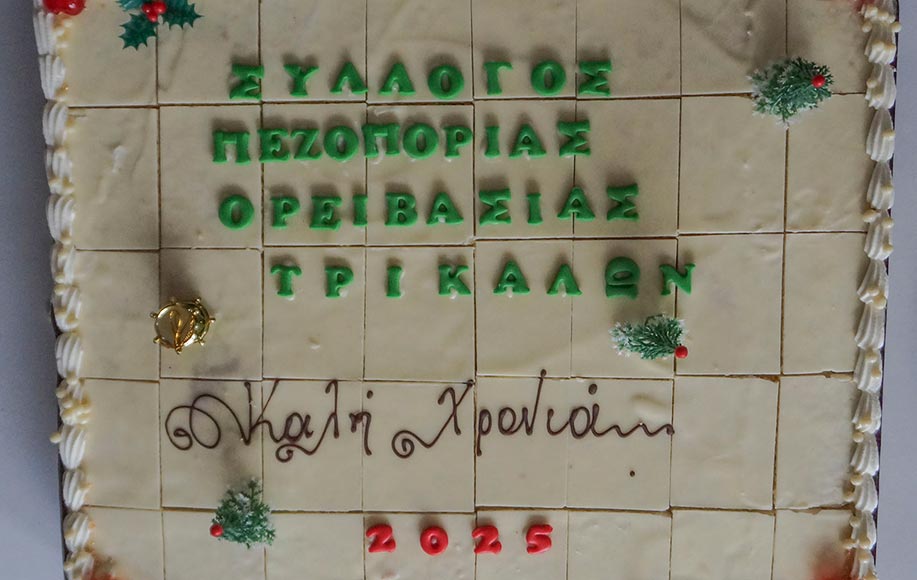 ΣΥΛΛΟΓΟΣ
ΠΕΖΟΠΟΡΙΑΣ
ΟΡΕΙΒΑΣΙΑΣ
ΤΡΙΚΑΛΩΝ
Καλή Χρονιά
2025